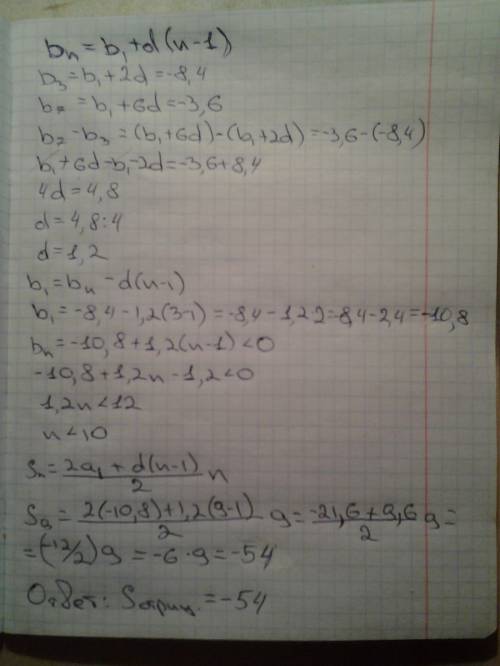 bn = b1+d(n-1)
b3 = b1+2d = -8,4
b7 = b1+6d = -3,6
b7 - b3 = (b1+6d)-(b1+2d) = -3,6-(-8,4)
b1+6d-b1-2d = -3,6+8,4
4d = 4,8
d = 4,8:4
d = 1,2
b1 = bn - d(n-1)
b1 = -8,4-1,2(3-1) = -8,4-1,2·2 = -8,4-2,4 = -10,8
bn = -10,8+1,2(n-1)<0
-10,8+1,2n-1,2<0
1,2n<12
n<10
Sn = (2a1+d(n-1))/2 n
S9 = (2(-10,8)+1,2(9-1))/2 9 = (-21,6+9,6)/2 9 =
= (-12/2)9 = -6·9 = -54
Ответ: Sотриц. = -54